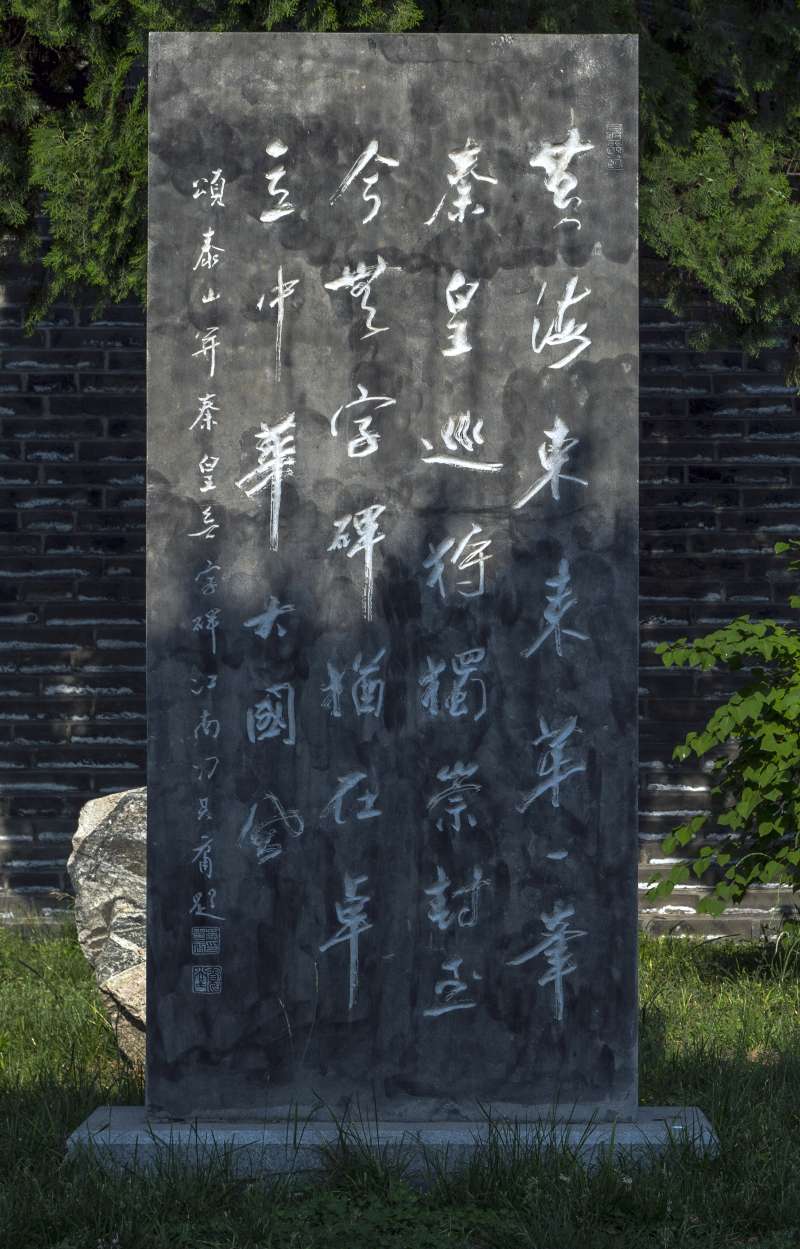 黄海東来第一峯
秦皇巡狩獨崇封至
今無字碑猶在卓
立中華大國岱
頌泰山并秦皇無字碑江南 題